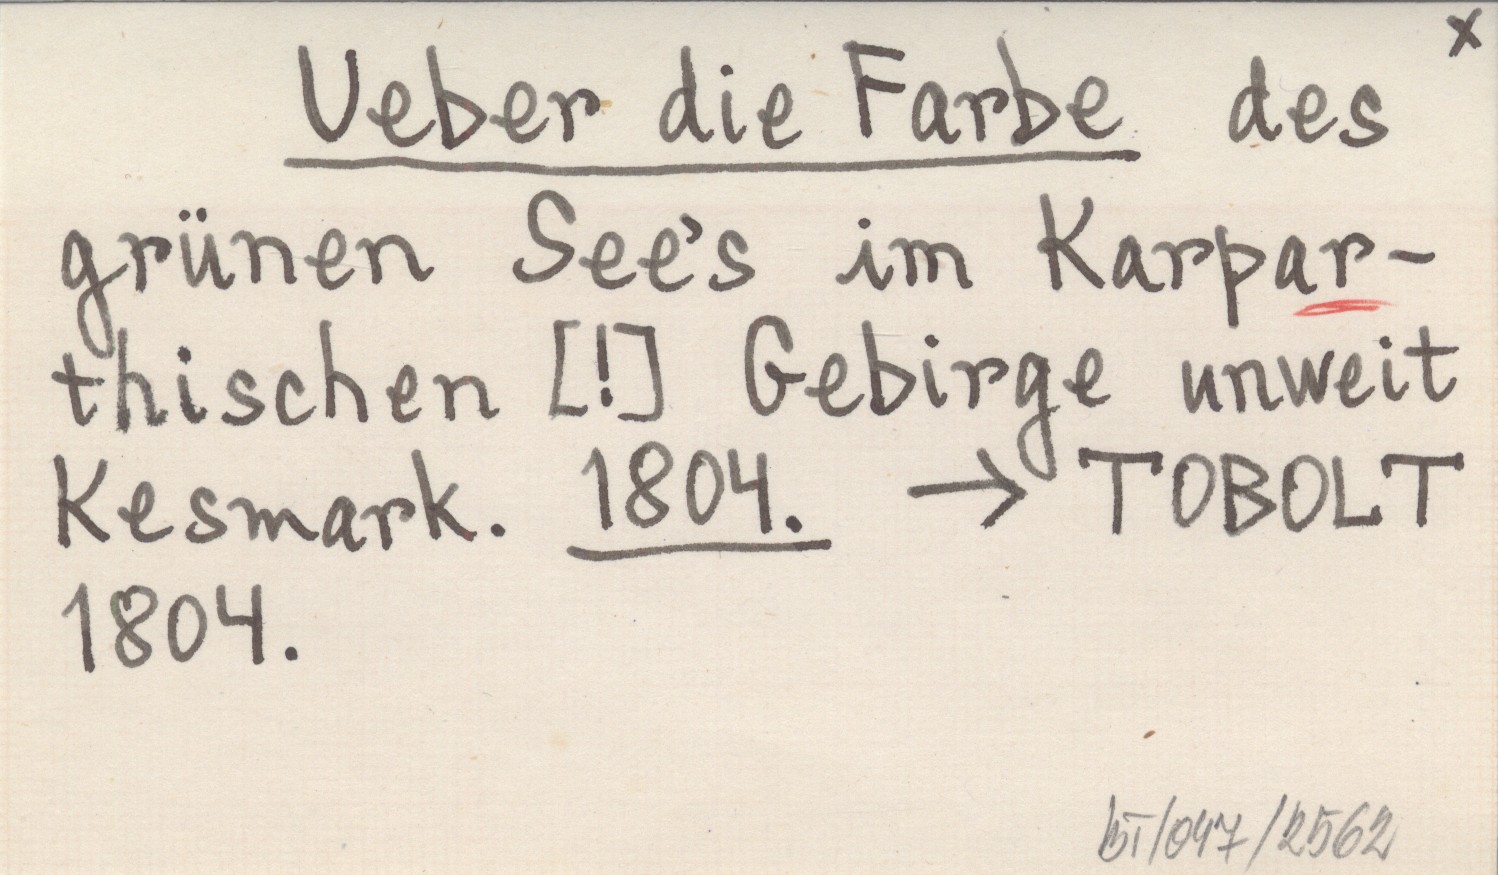 x
Ueber die Farbe des
grünen See's im Karpar-
thischen [!] Gebirge unweit
Kesmark. 1804. → TOBOLT
1804.
bT/047/2562